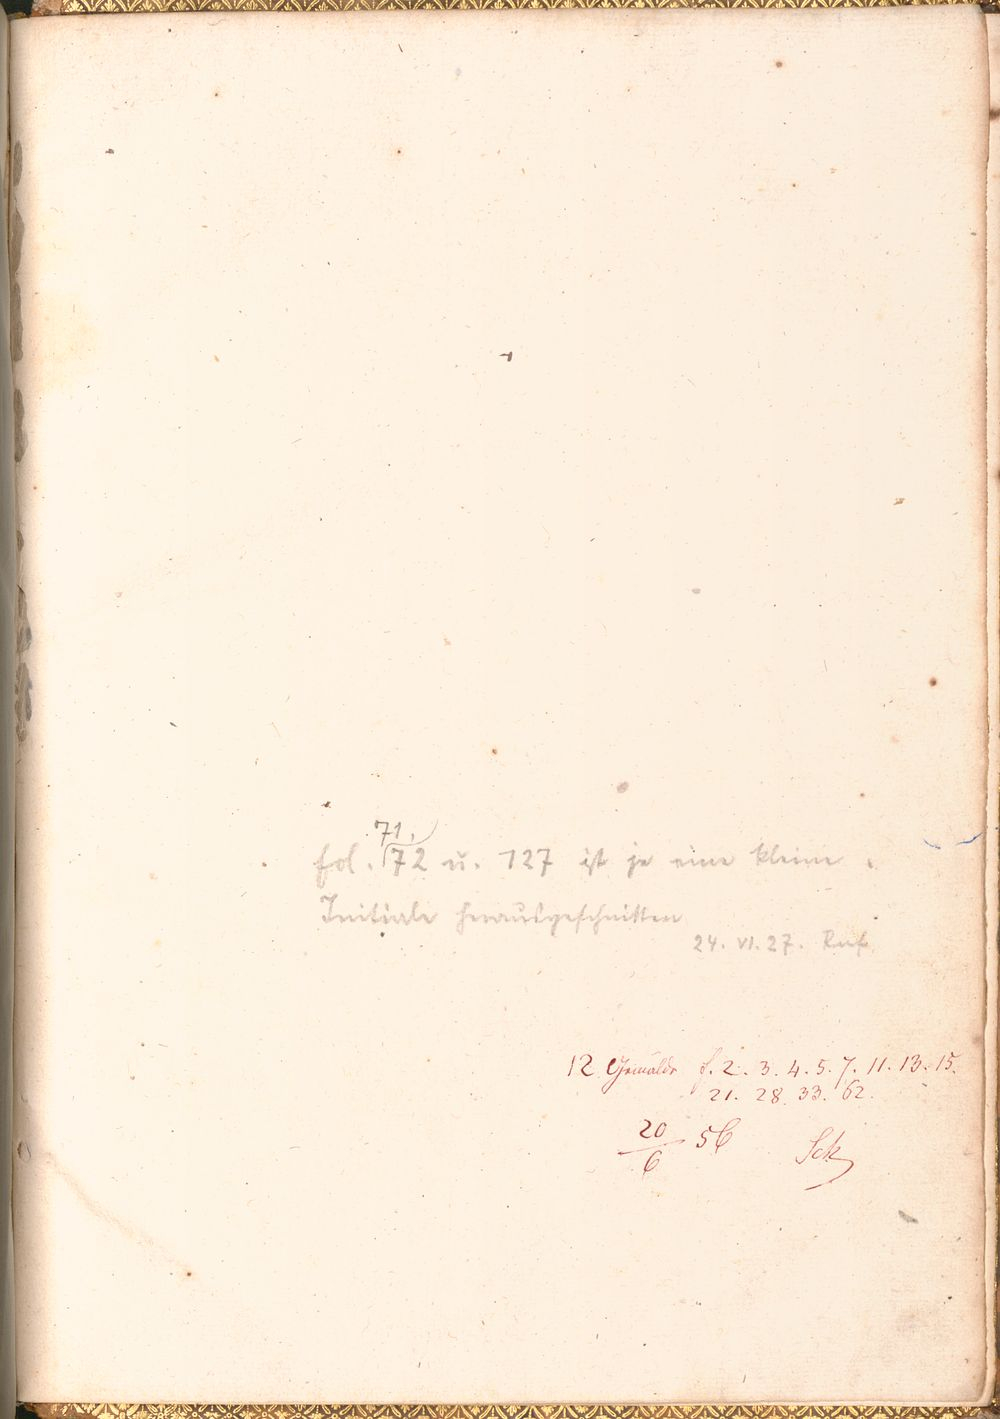 71,
fol. 72 u. 127 ist je eine kleine
Initiale herausgeschnitten
24. VI. 27. Ruf
12 Gemälde f. 2. 3. 4. 5. 7. 11. 13. 15.
21. 28. 33. 62.
20/6 56 Sck